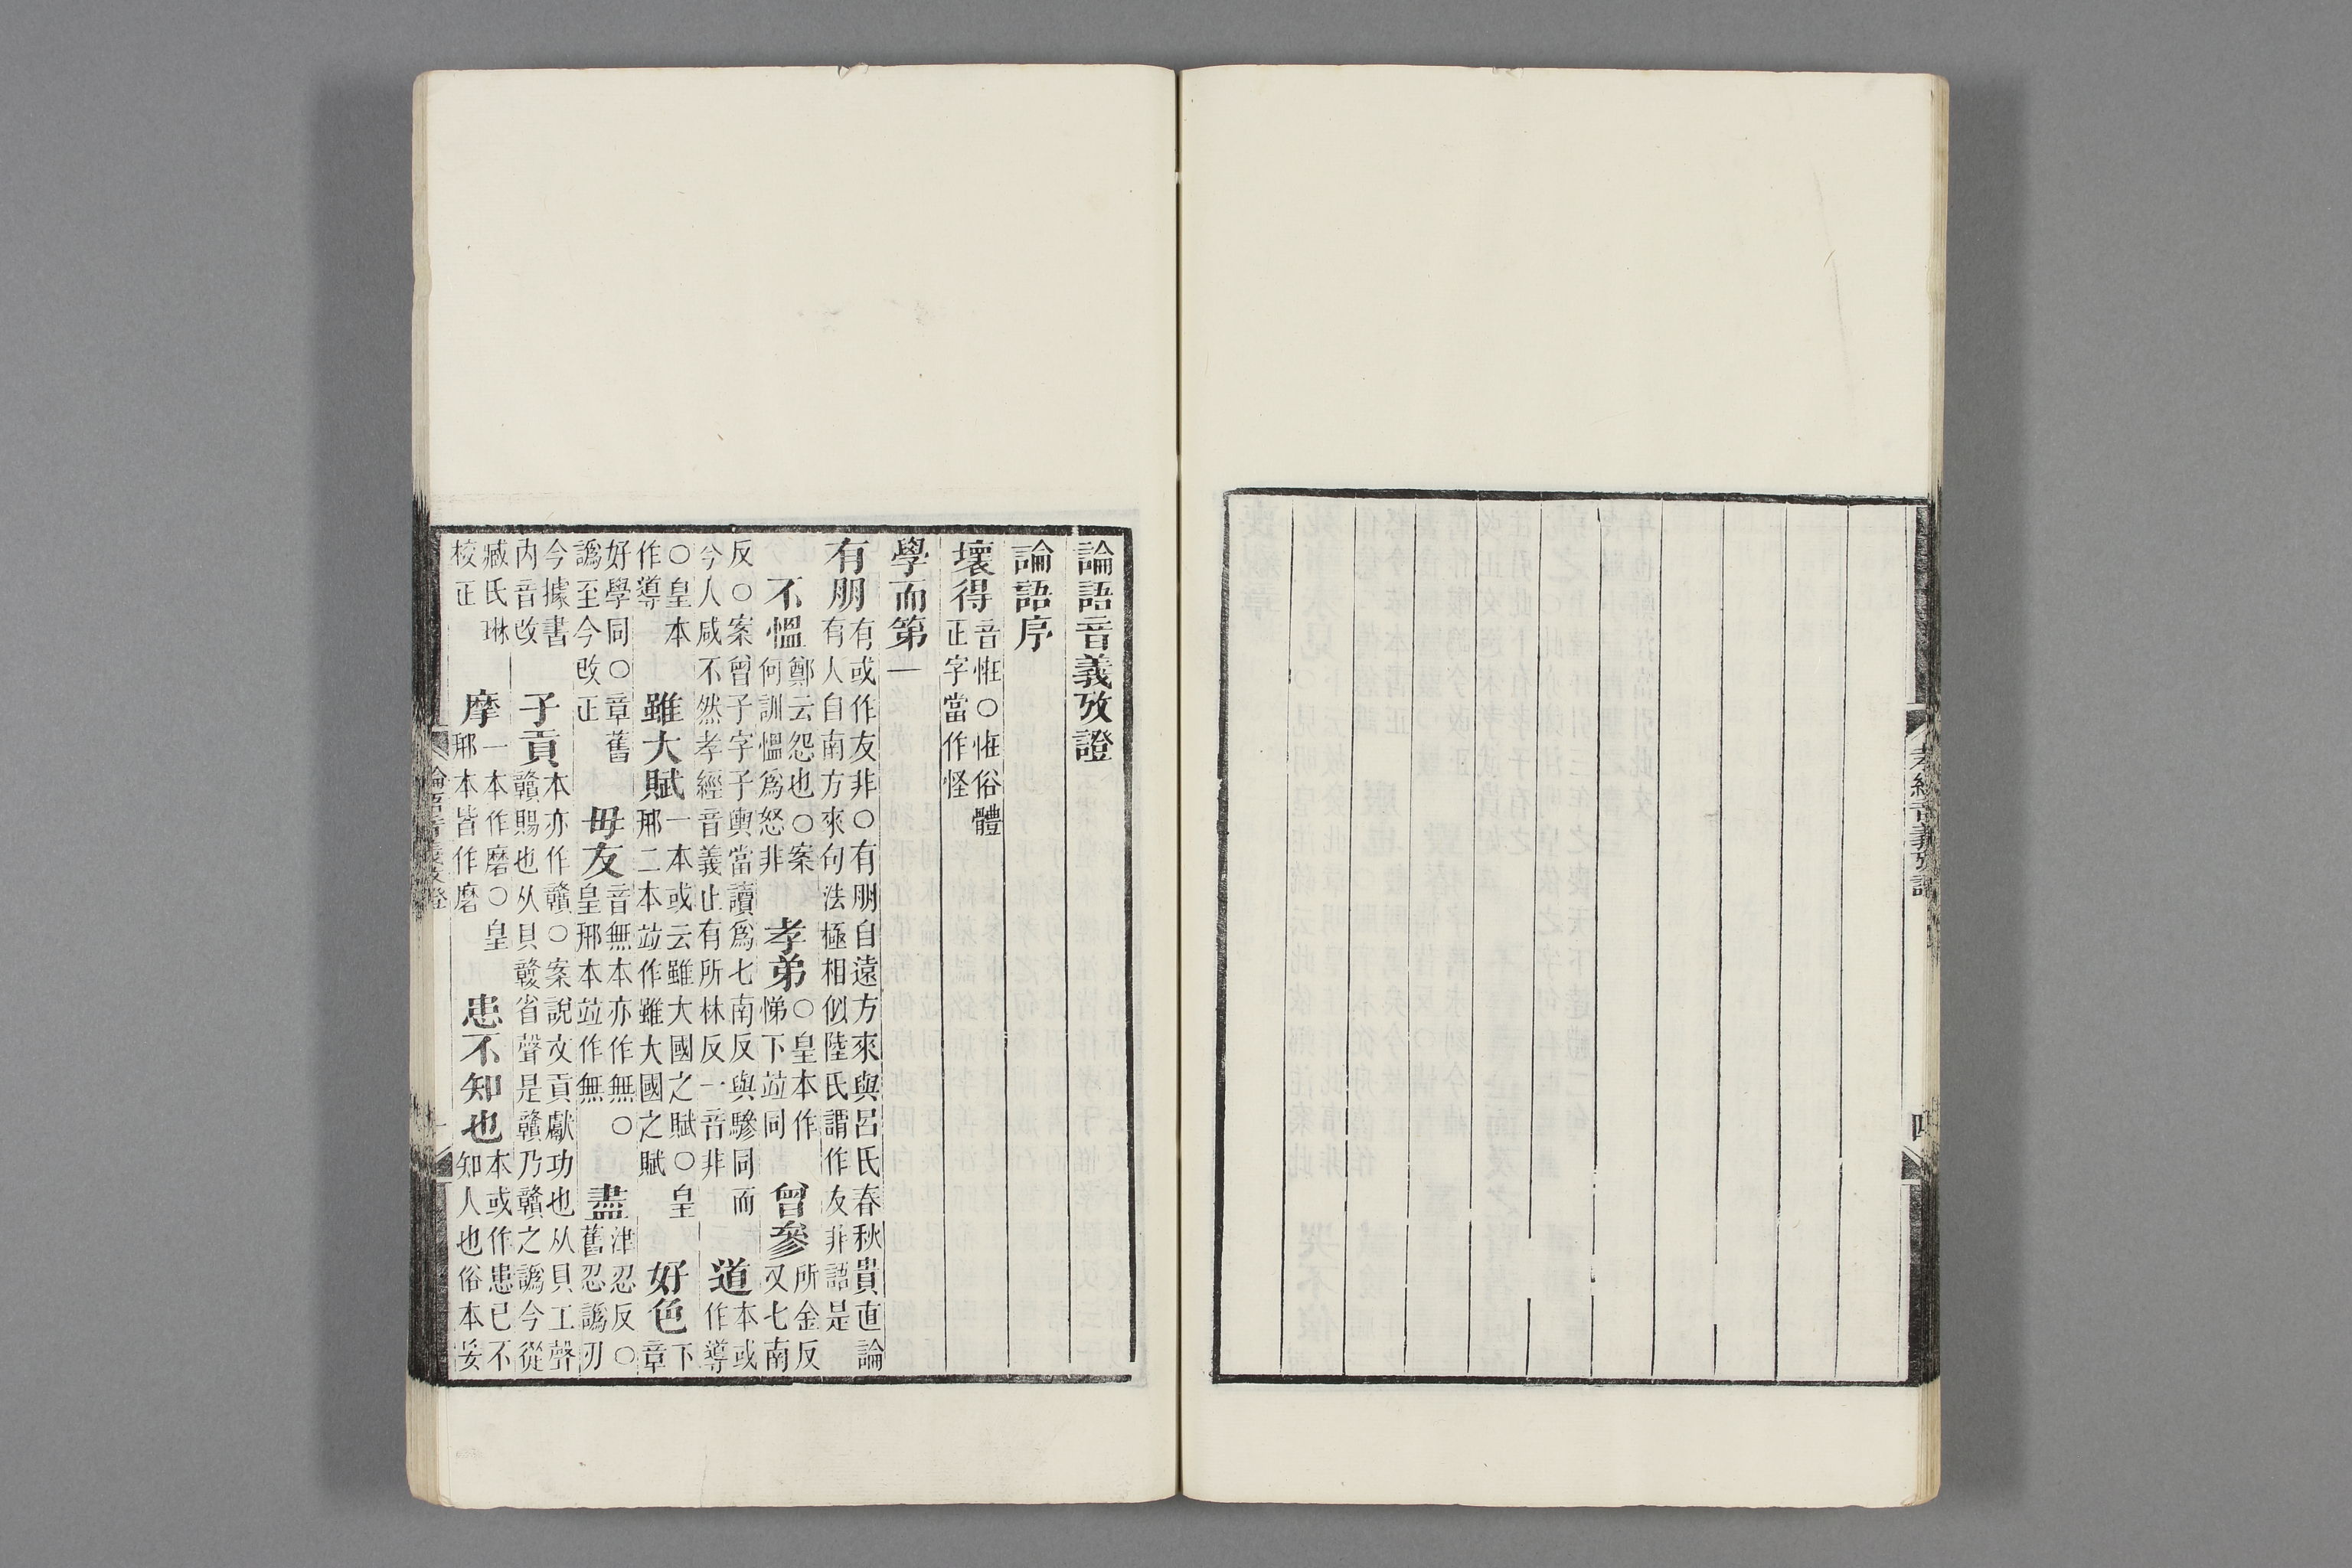 孝經音義攷證
四
論語音義攷證
論語序
壞得音恠○恠俗體
正字當作怪
學而第一
有朋有或作友非○有朋自遠方來與呂氏春秋貴直論
有人自南方來句法極相似陸氏謂作友非語是
不慍鄭云怨也○案
何訓慍爲怒非
孝弟○皇本作
悌下竝同
曾參所金反
又七南
反○案曾子字子輿當讀爲七南反與驂同而
今人咸不然孝經音義止有所林反一音非
道本或
作導
○皇本
作導
雖大賦一本或云雖大國之賦○皇
邢二本竝作雖大國之賦
好色下
章
好學同○章舊
譌至今改正
毋友音無本亦作無○
皇邢本竝作無
盡津忍反○
舊忍譌刃
今據書
内音改
子貢本亦作贛○案說文貢獻功也从貝工聲
贛賜也从貝竷省聲是贛乃贛之譌今從
臧氏琳
校正
摩一本作磨○皇
邢本皆作磨
患不知也本或作患已不
知人也俗本妄
論語音義攷證
一